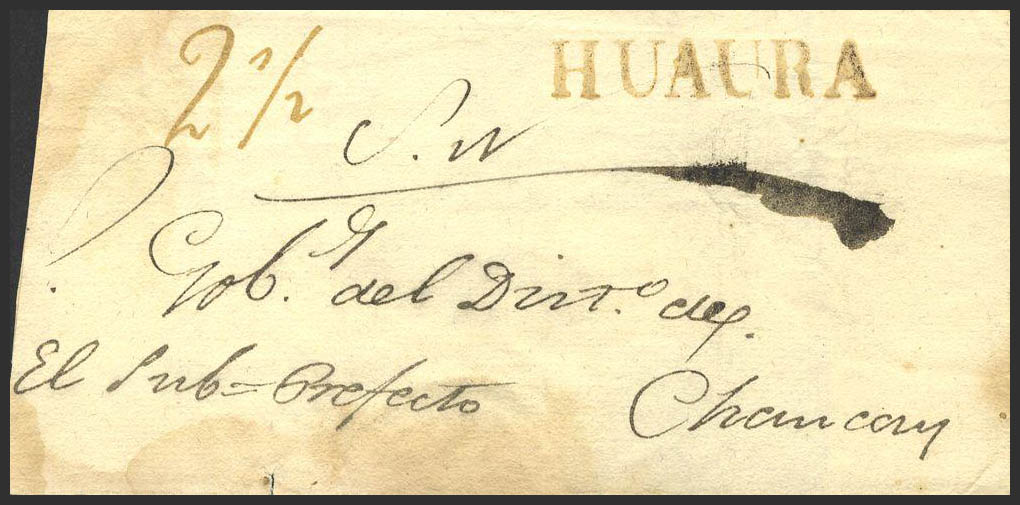 2 1/2 HUAURA
S. N
Gob.r del Dist.o de
El Sub=Prefecto Chancay